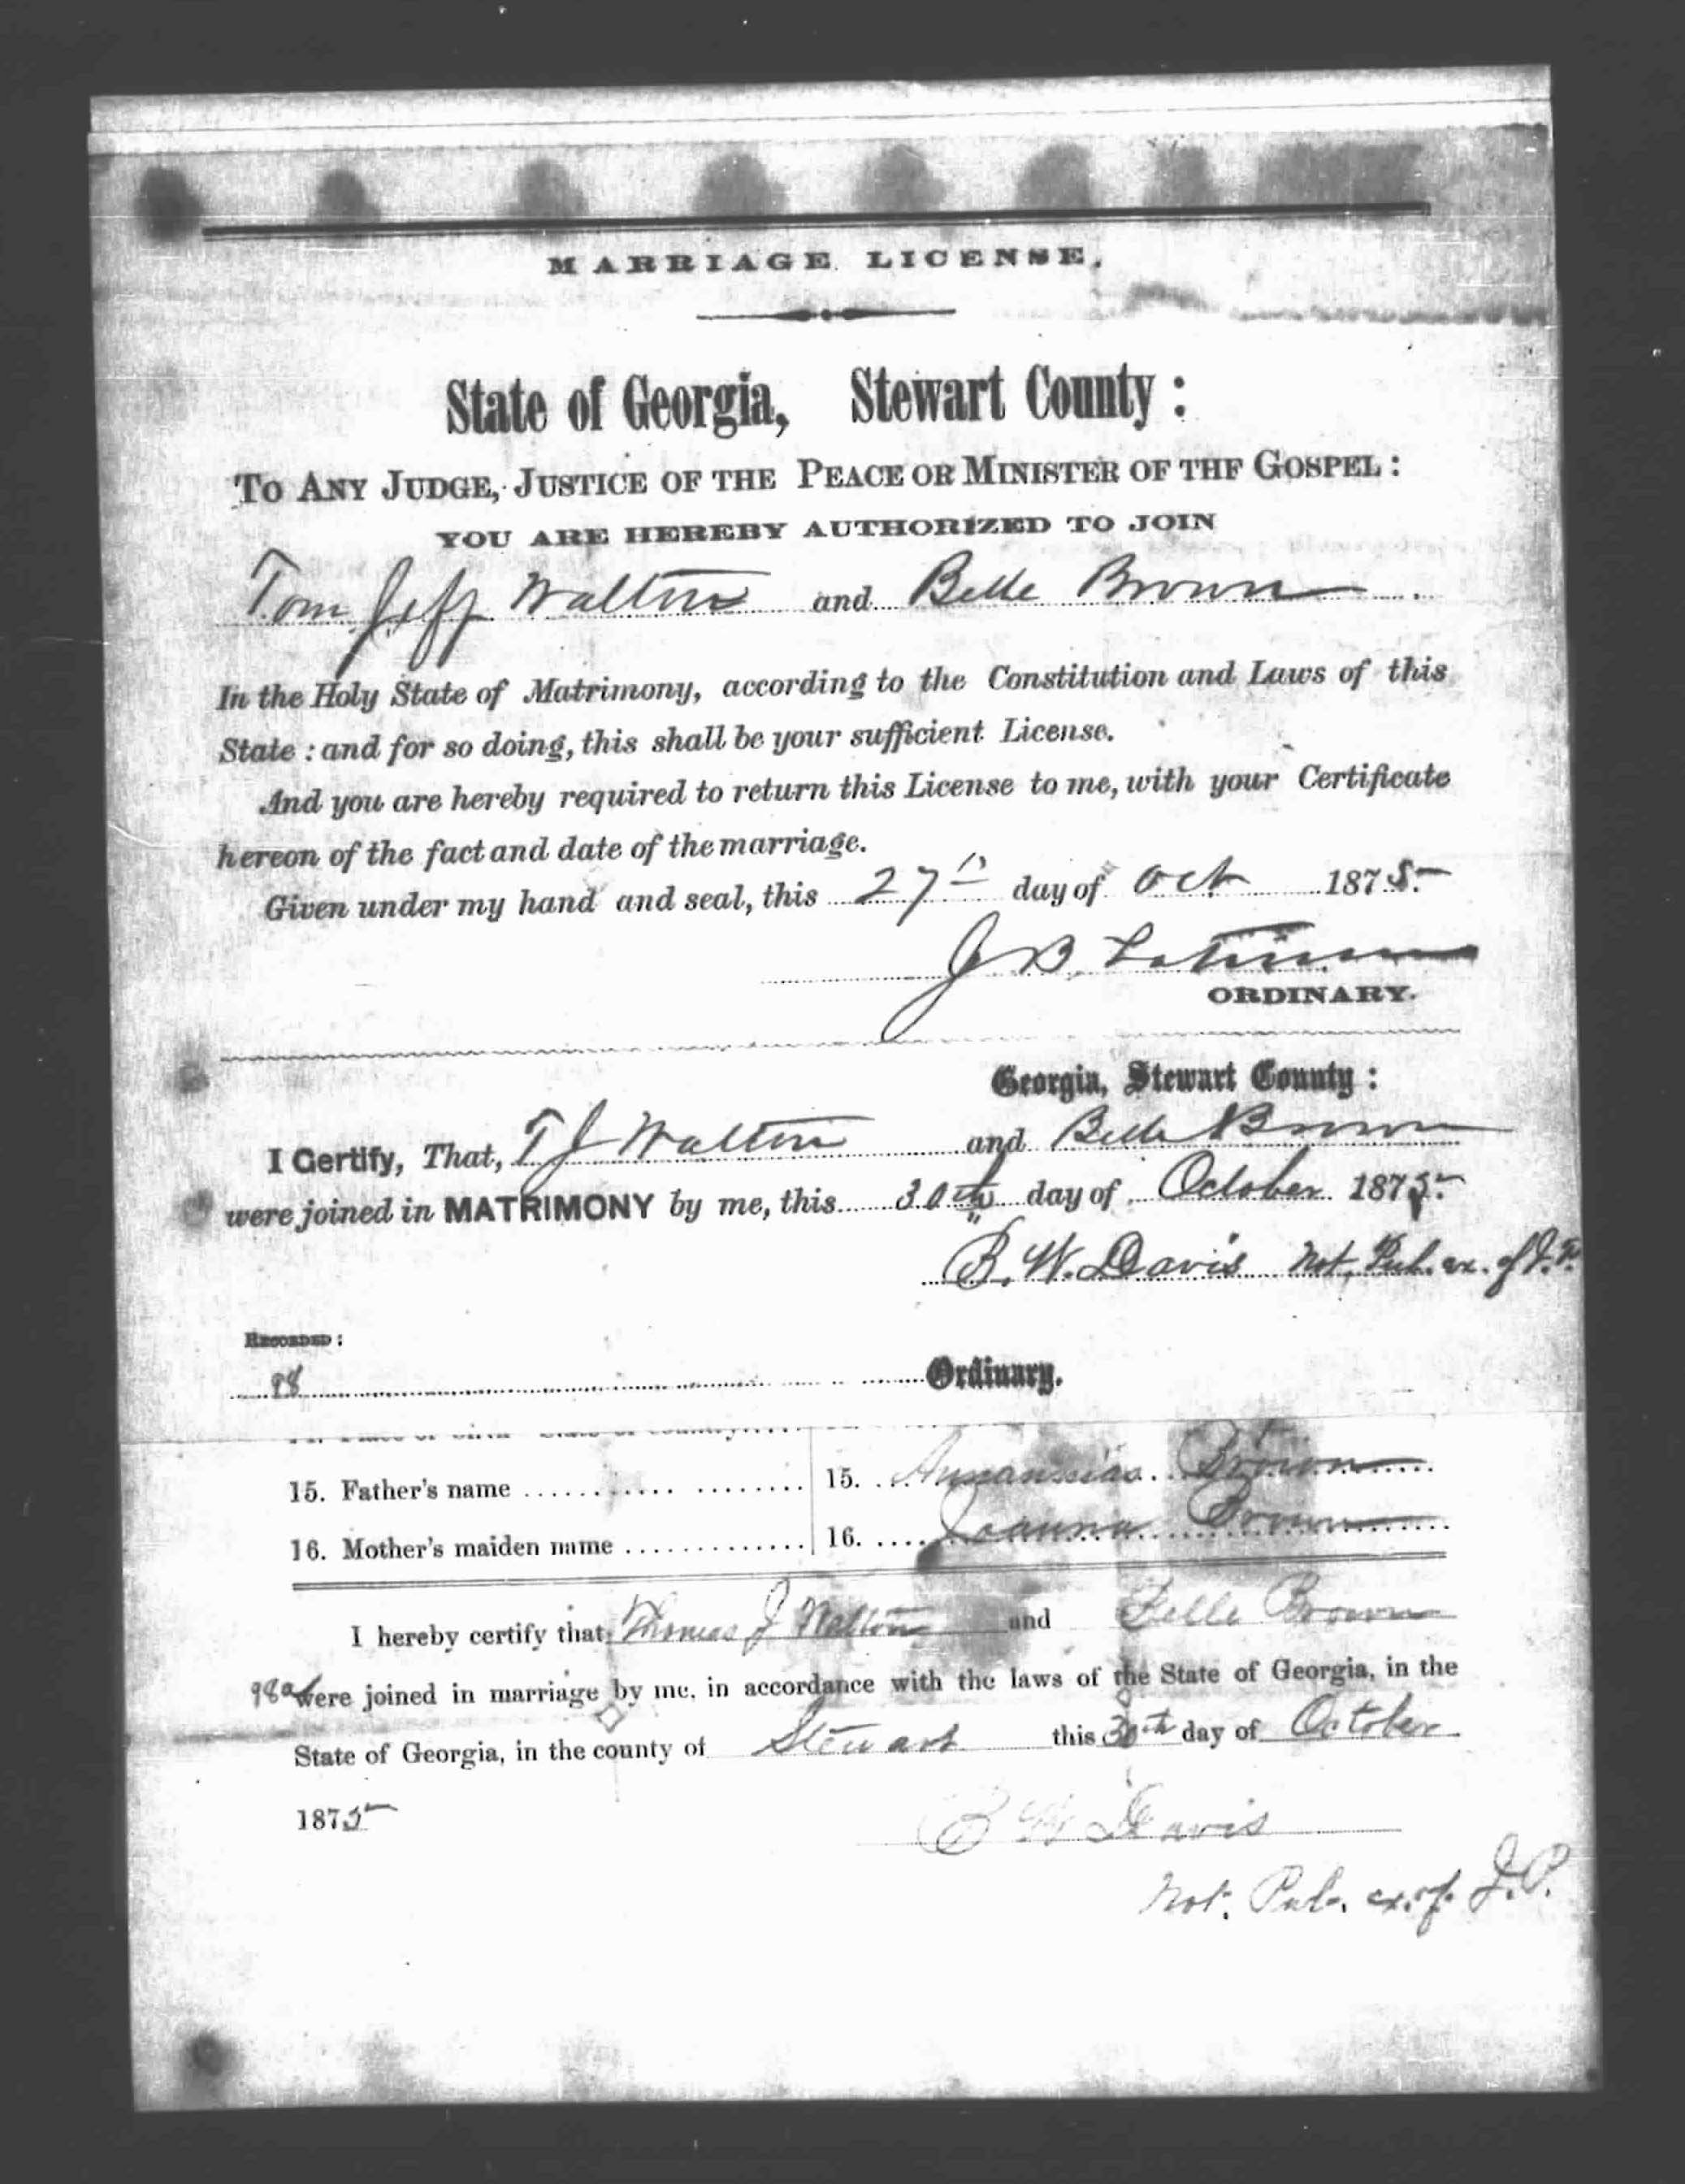 MARRIAGE LICENSE.
State of Georgia, Stewart County :
TO ANY JUDGE, JUSTICE OF THE PEACE OR MINISTER OF THE GOSPEL :
YOU ARE HEREBY AUTHORIZED TO JOIN
Tom Jeff Walton and Belle Brown
In the Holy State of Matrimony, according to the Constitution and Laws of this
State : and for so doing, this shall be your sufficient License.
And you are hereby required to return this License to me, with your Certificate
hereon of the fact and date of the marriage.
Given under my hand and seal, this 27th day of Oct 1875
J B Latimer
ORDINARY.
Georgia, Stewart County :
I Certify, That, T J Walton and Belle Brown
were joined in MATRIMONY by me, this 30th day of October 1875
B. W. Davis Not. Pub. ex. of J.P.
RECORDED :
98 Ordinary.
15. Father's name 15. Brown
16. Mother's maiden name 16. Joanna Brown
I hereby certify that Thomas J Walton and Belle Brown
98a were joined in marriage by me, in accordance with the laws of the State of Georgia, in the
State of Georgia, in the county of Stewart this 30th day of October
1875
B W Davis
Not. Pub. ex. of. J.P.